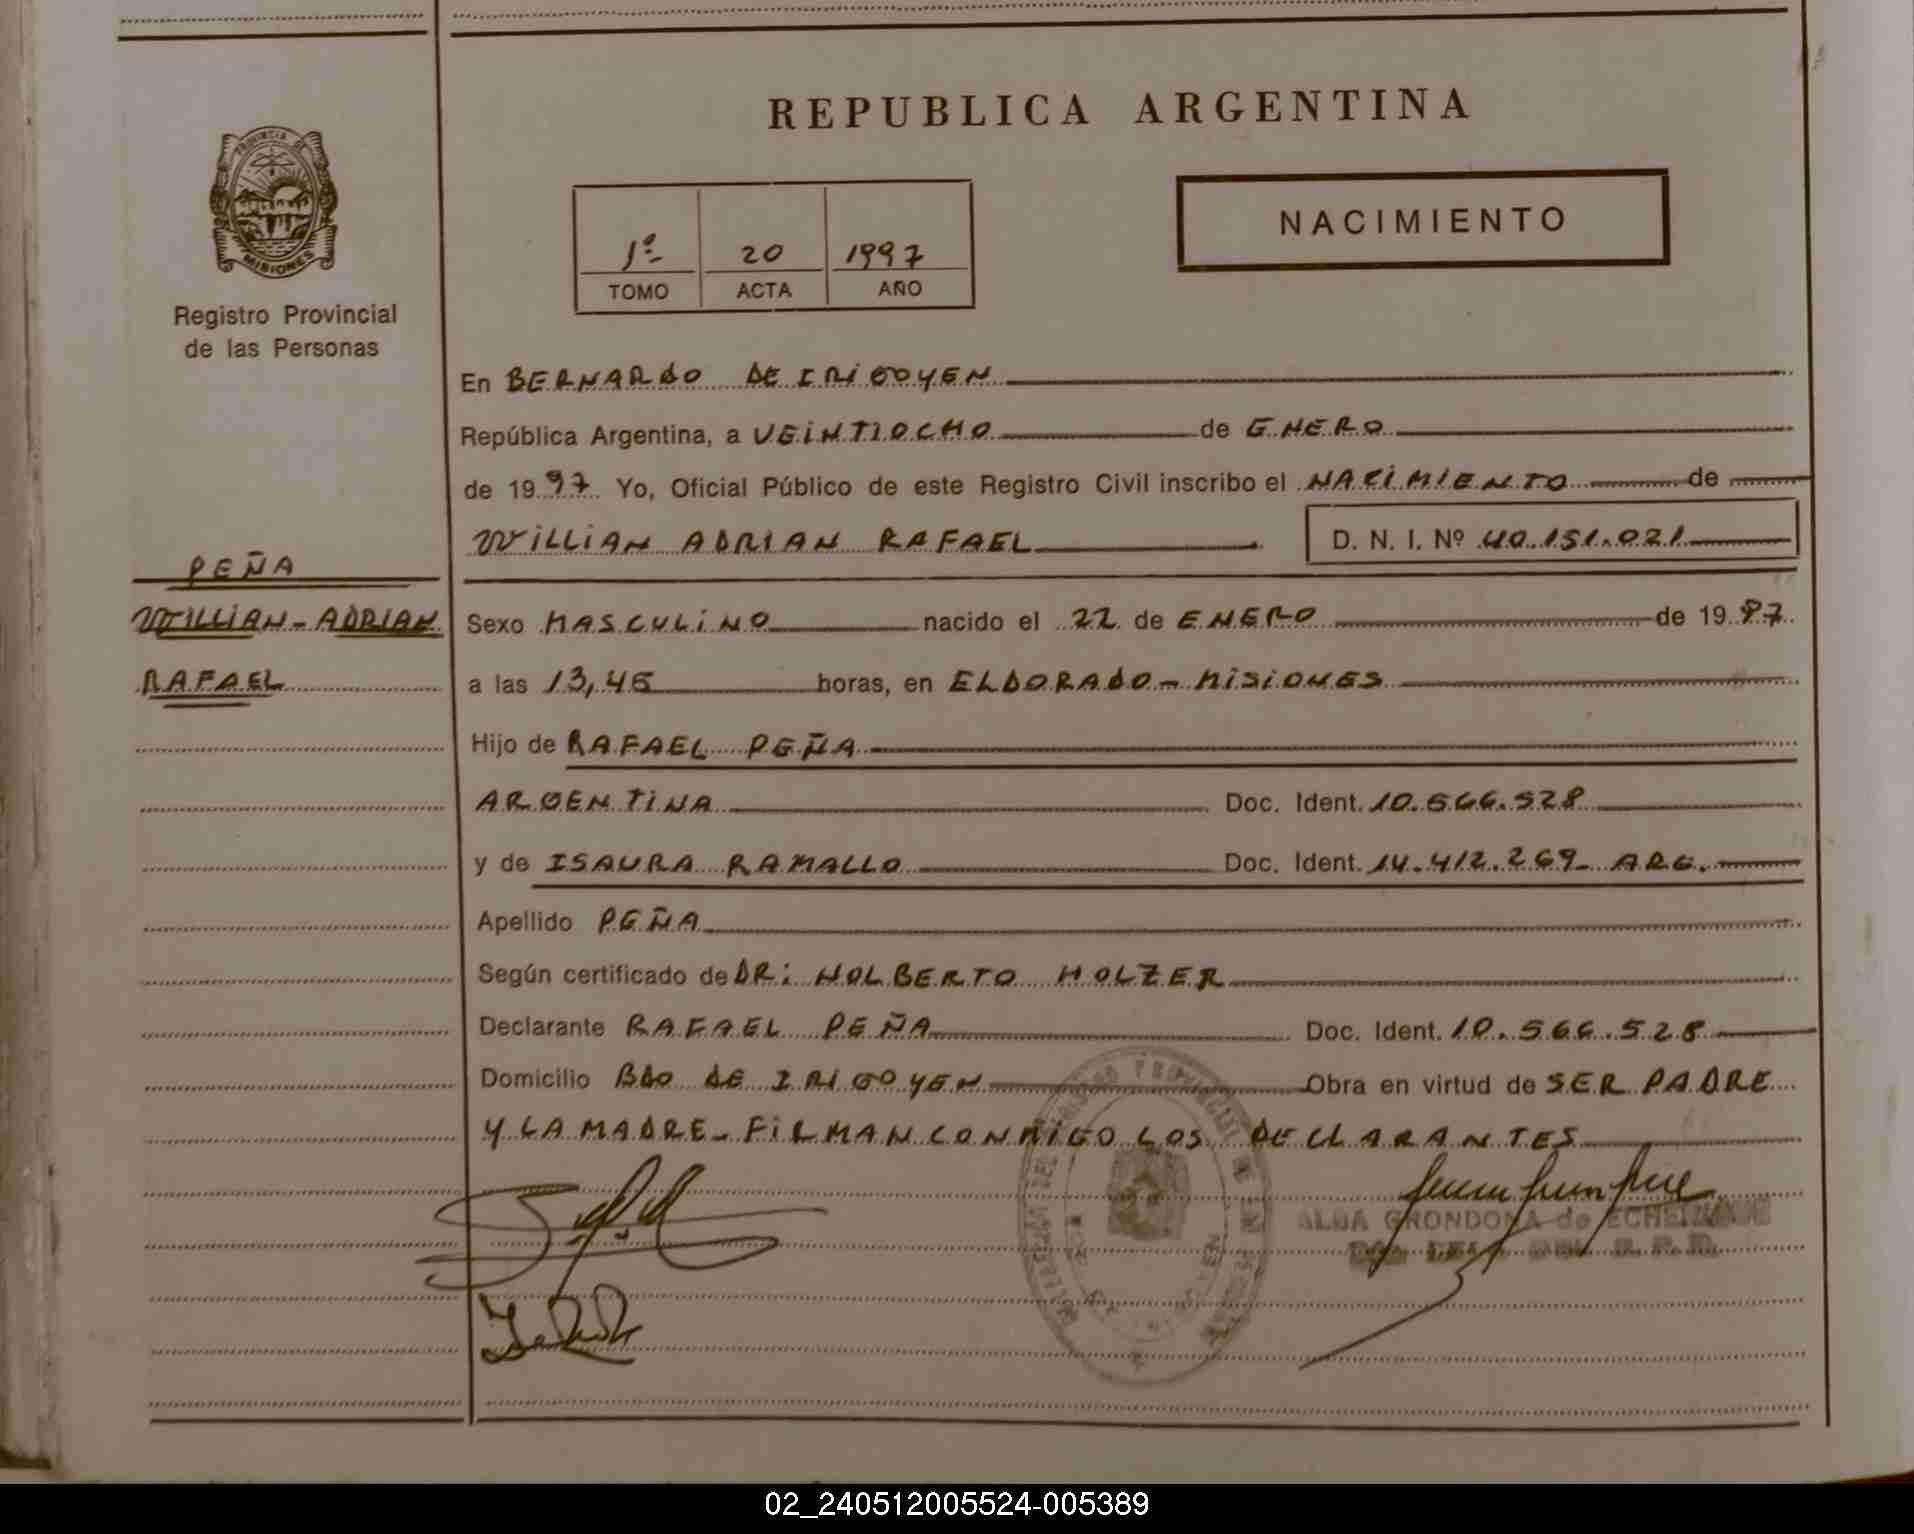 REPUBLICA ARGENTINA
PROVINCIA DE
MISIONES
Registro Provincial
de las Personas
1º 20 1997
TOMO ACTA AÑO
NACIMIENTO
En BERNARDO DE IRIGOYEN
República Argentina, a VEINTIOCHO de ENERO
de 1997 Yo, Oficial Público de este Registro Civil inscribo el NACIMIENTO de
WILLIAN ADRIAN RAFAEL D. N. I. Nº 40.151.021
PEÑA
WILLIAN-ADRIAN
RAFAEL
Sexo MASCULINO nacido el 22 de ENERO de 1997
a las 13,45 horas, en ELDORADO - MISIONES
Hijo de RAFAEL PEÑA
ARGENTINA Doc. Ident. 10.566.528
y de ISAURA RAMALLO Doc. Ident. 14.412.269- ARG.
Apellido PEÑA
Según certificado de DR: NOLBERTO HOLZER
Declarante RAFAEL PEÑA Doc. Ident. 10.566.528
Domicilio BDO DE IRIGOYEN Obra en virtud de SER PADRE
Y LA MADRE- FIRMAN CONMIGO LOS DECLARANTES
ALBA GRONDONA de
02_240512005524-005389